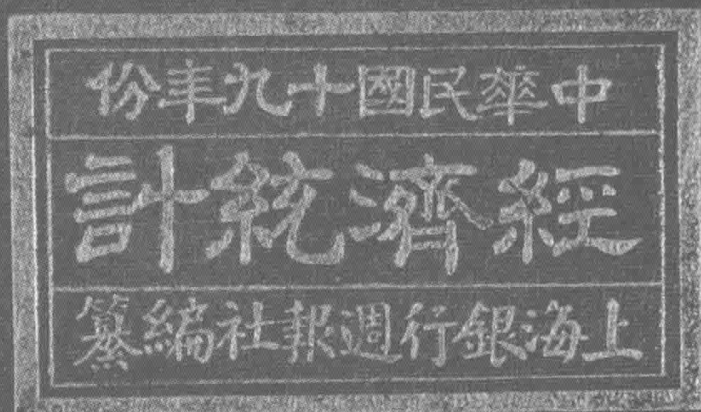 中華民國十九年份
經濟統計
上海銀行週報社編纂